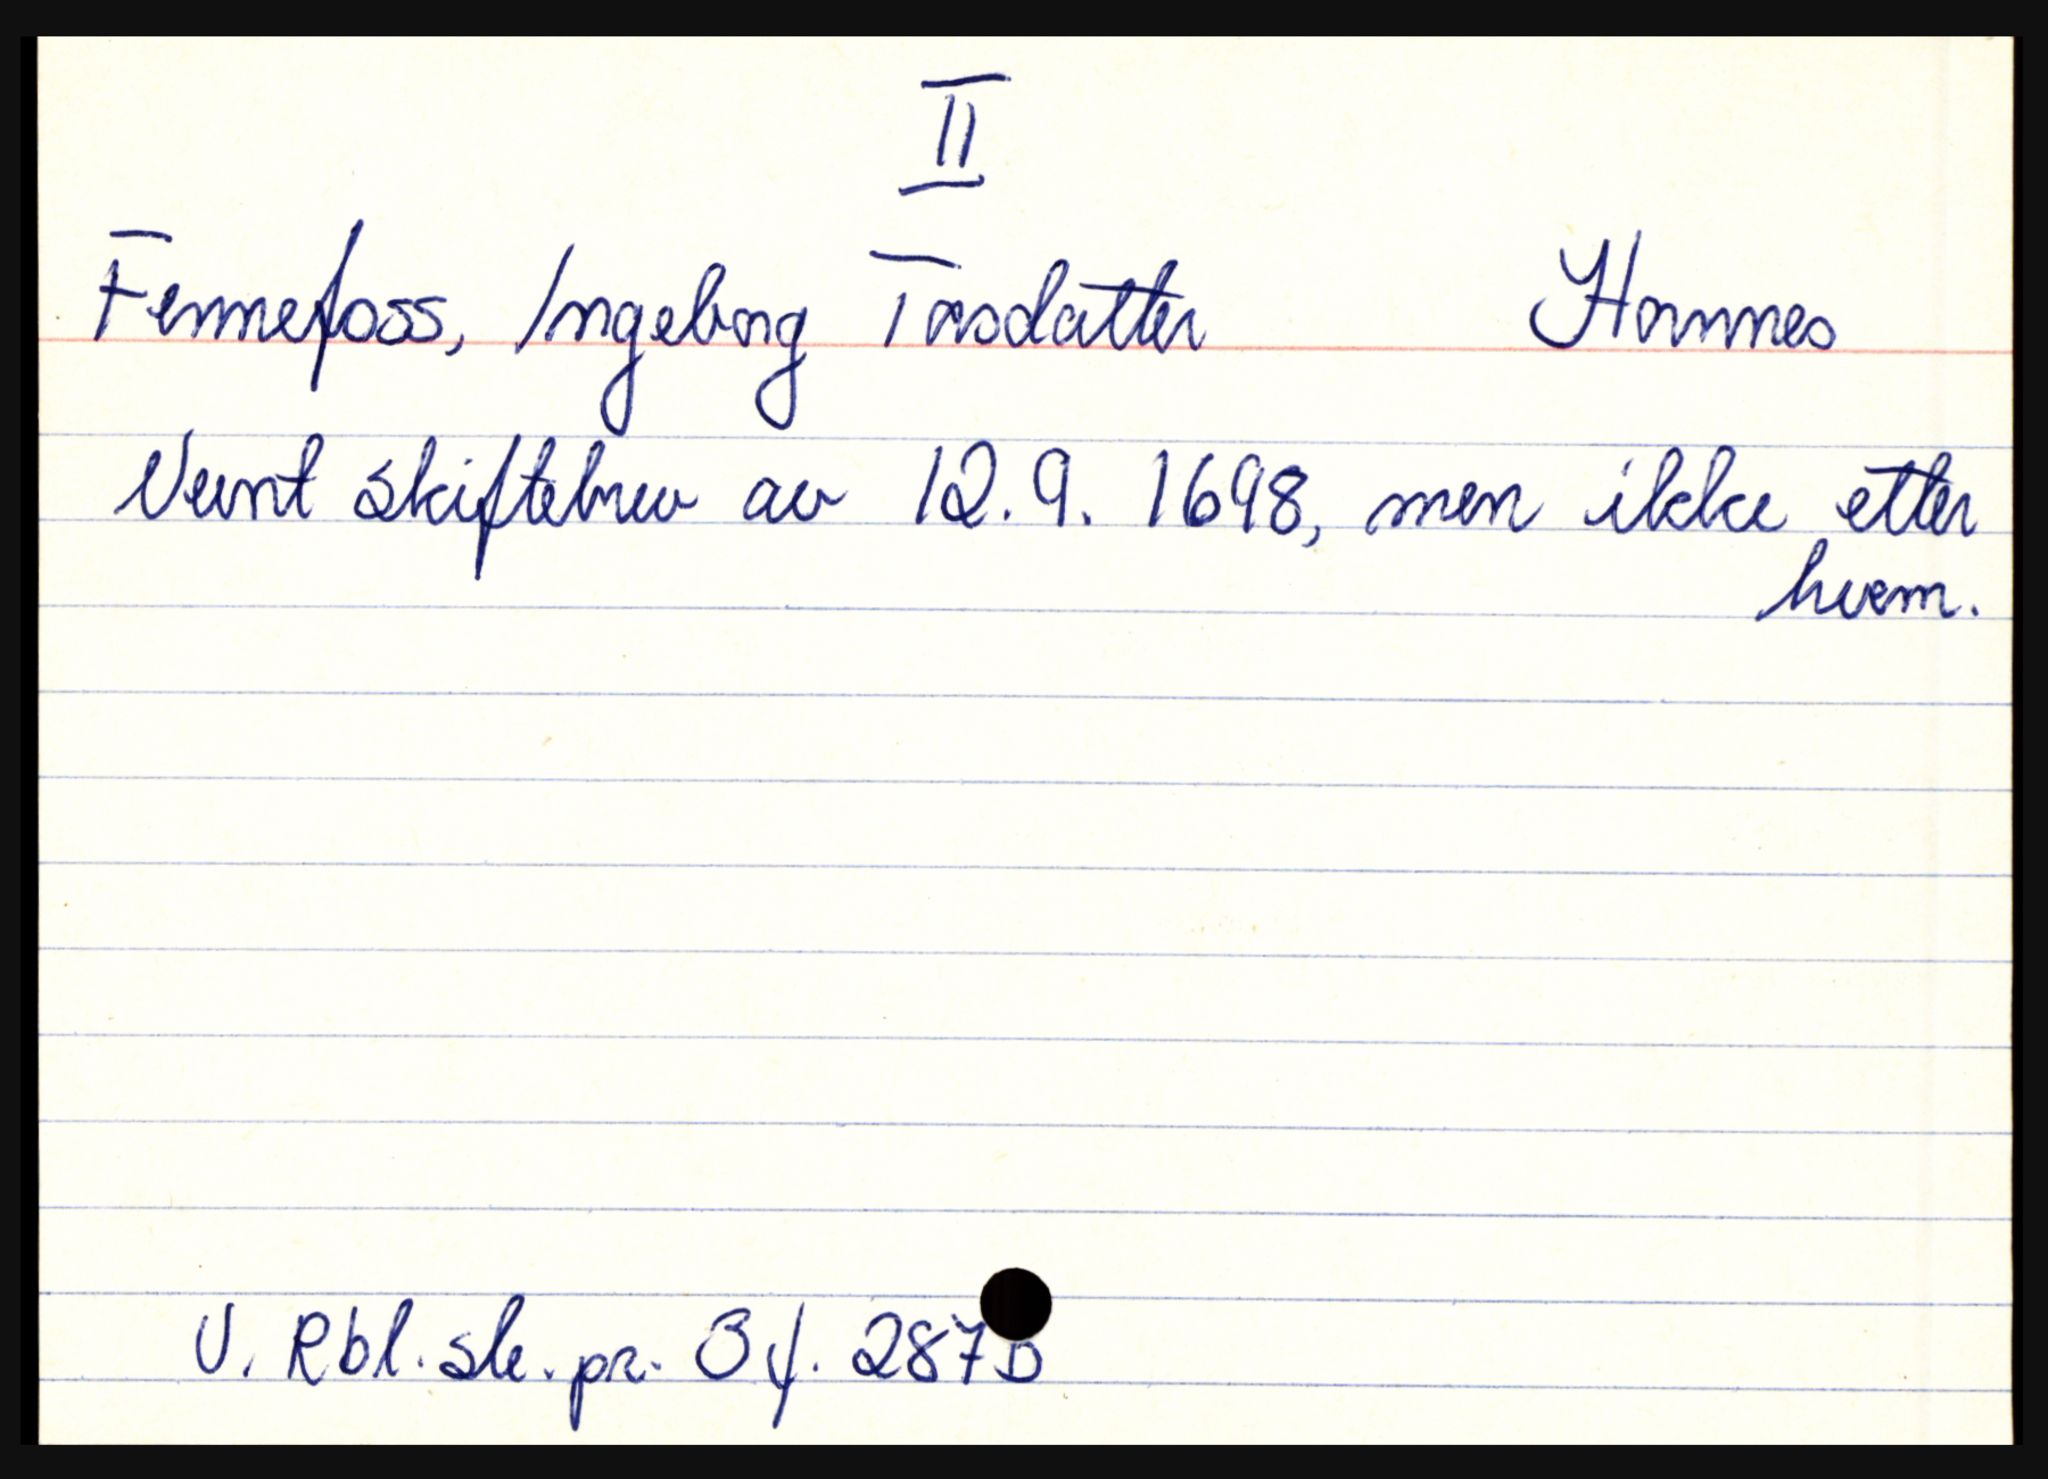 II
Fennefoss, Ingeborg Torsdatter Hornnes
Nevnt skiftebrev av 12.9. 1698, men ikke etter
hvem.
V. Rbl. sk. pr. 3 f. 287 b